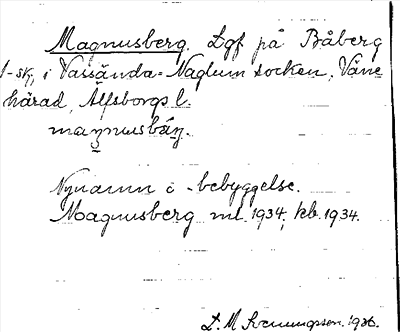 Magnusberg. Lgf på Båberg
1-sk, i Vassända-Naglum socken, Väne
härad, Älfsborgs l.
Nynamn å -bebyggelse.
Magnusberg ml. 1934, kb. 1934.
L. M. Svenungsson. 1936.